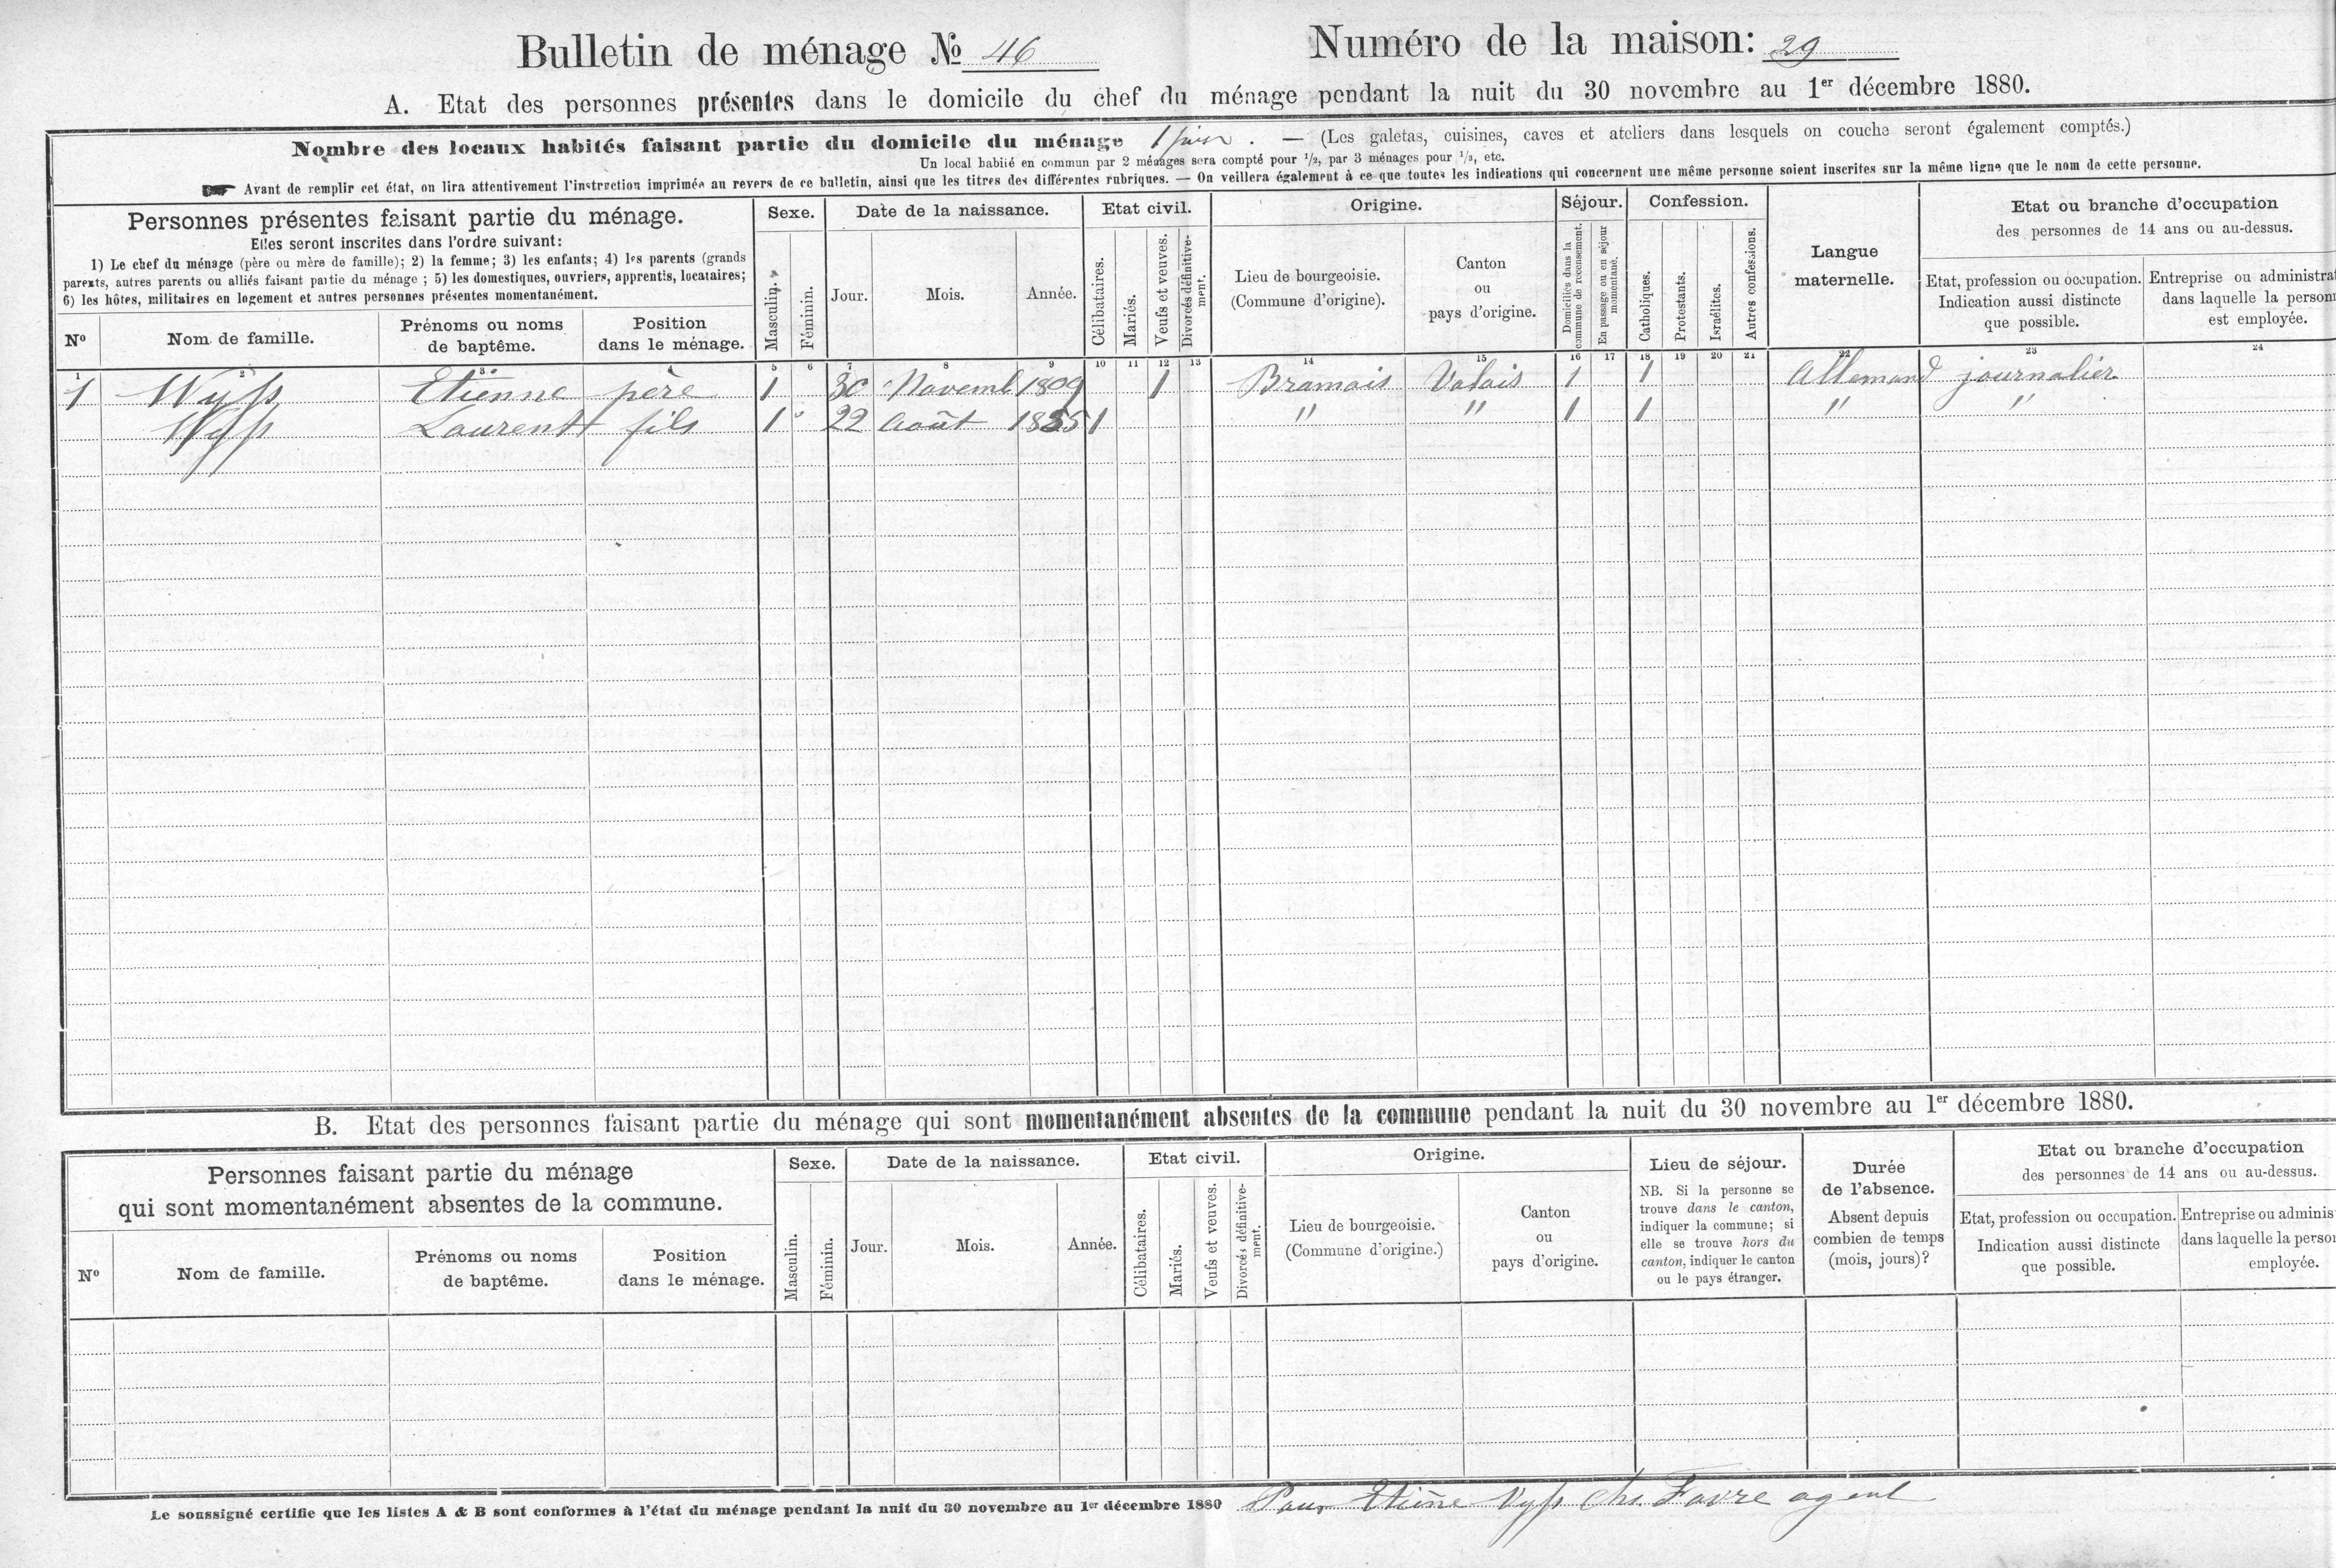 Bulletin de ménage № 46
Numéro de la maison: 29
A. Etat des personnes présentes dans le domicile du chef du ménage pendant la nuit du 30 novembre au 1er décembre 1880.
Nombre des locaux habités faisant partie du domicile du ménage 1 . — (Les galetas, cuisines, caves et ateliers dans lesquels on couche seront également comptés.)
Un local habité en commun par 2 ménages sera compté pour 1/2, par 3 ménages pour 1/3, etc.
Avant de remplir cet état, on lira attentivement l'instruction imprimée au revers de ce bulletin, ainsi que les titres des différentes rubriques. — On veillera également à ce que toutes les indications qui concernent une même personne soient inscrites sur la même ligne que le nom de cette personne.
Personnes présentes faisant partie du ménage.
Elles seront inscrites dans l'ordre suivant:
1) Le chef du ménage (père ou mère de famille); 2) la femme; 3) les enfants; 4) les parents (grands
parents, autres parents ou alliés faisant partie du ménage; 5) les domestiques, ouvriers, apprentis, locataires;
6) les hôtes, militaires en logement et autres personnes présentes momentanément.
Nº
Nom de famille.
Prénoms ou noms
de baptême.
Position
dans le ménage.
Sexe.
Masculin.
Féminin.
Date de la naissance.
Jour.
Mois.
Année.
Etat civil.
Célibataires.
Mariés.
Veufs et veuves.
Divorcés définitive-
ment.
Origine.
Lieu de bourgeoisie.
(Commune d'origine).
Canton
ou
pays d'origine.
Séjour.
Domiciliés dans la
commune de recensement.
En passage ou en séjour
momentané.
Confession.
Catholiques.
Protestants.
Israélites.
Autres confessions.
Langue
maternelle.
Etat ou branche d'occupation
des personnes de 14 ans ou au-dessus.
Etat, profession ou occupation.
Indication aussi distincte
que possible.
Entreprise ou administra
dans laquelle la person
est employée.
1 2 3 5 6 7 8 9 10 11 12 13 14 15 16 17 18 19 20 21 22 23 24
1 Wyß Etienne père 1 30 Novemb 1809 1 Bramois Valais 1 1 Allemand journalier
Wyß Laurent fils 1 22 Août 1855 1 " " 1 1 " "
B. Etat des personnes faisant partie du ménage qui sont momentanément absentes de la commune pendant la nuit du 30 novembre au 1er décembre 1880.
Personnes faisant partie du ménage
qui sont momentanément absentes de la commune.
Nº
Nom de famille.
Prénoms ou noms
de baptême.
Position
dans le ménage.
Sexe.
Masculin.
Féminin.
Date de la naissance.
Jour.
Mois.
Année.
Etat civil.
Célibataires.
Mariés.
Veufs et veuves.
Divorcés définitive-
ment.
Origine.
Lieu de bourgeoisie.
(Commune d'origine.)
Canton
ou
pays d'origine.
Lieu de séjour.
NB. Si la personne se
trouve dans le canton,
indiquer la commune; si
elle se trouve hors du
canton, indiquer le canton
ou le pays étranger.
Durée
de l'absence.
Absent depuis
combien de temps
(mois, jours)?
Etat ou branche d'occupation
des personnes de 14 ans ou au-dessus.
Etat, profession ou occupation.
Indication aussi distincte
que possible.
Entreprise ou adminis
dans laquelle la perso
employée.
Le soussigné certifie que les listes A & B sont conformes à l'état du ménage pendant la nuit du 30 novembre au 1er décembre 1880 Pour Etiene Vyß Chs. Favre agent